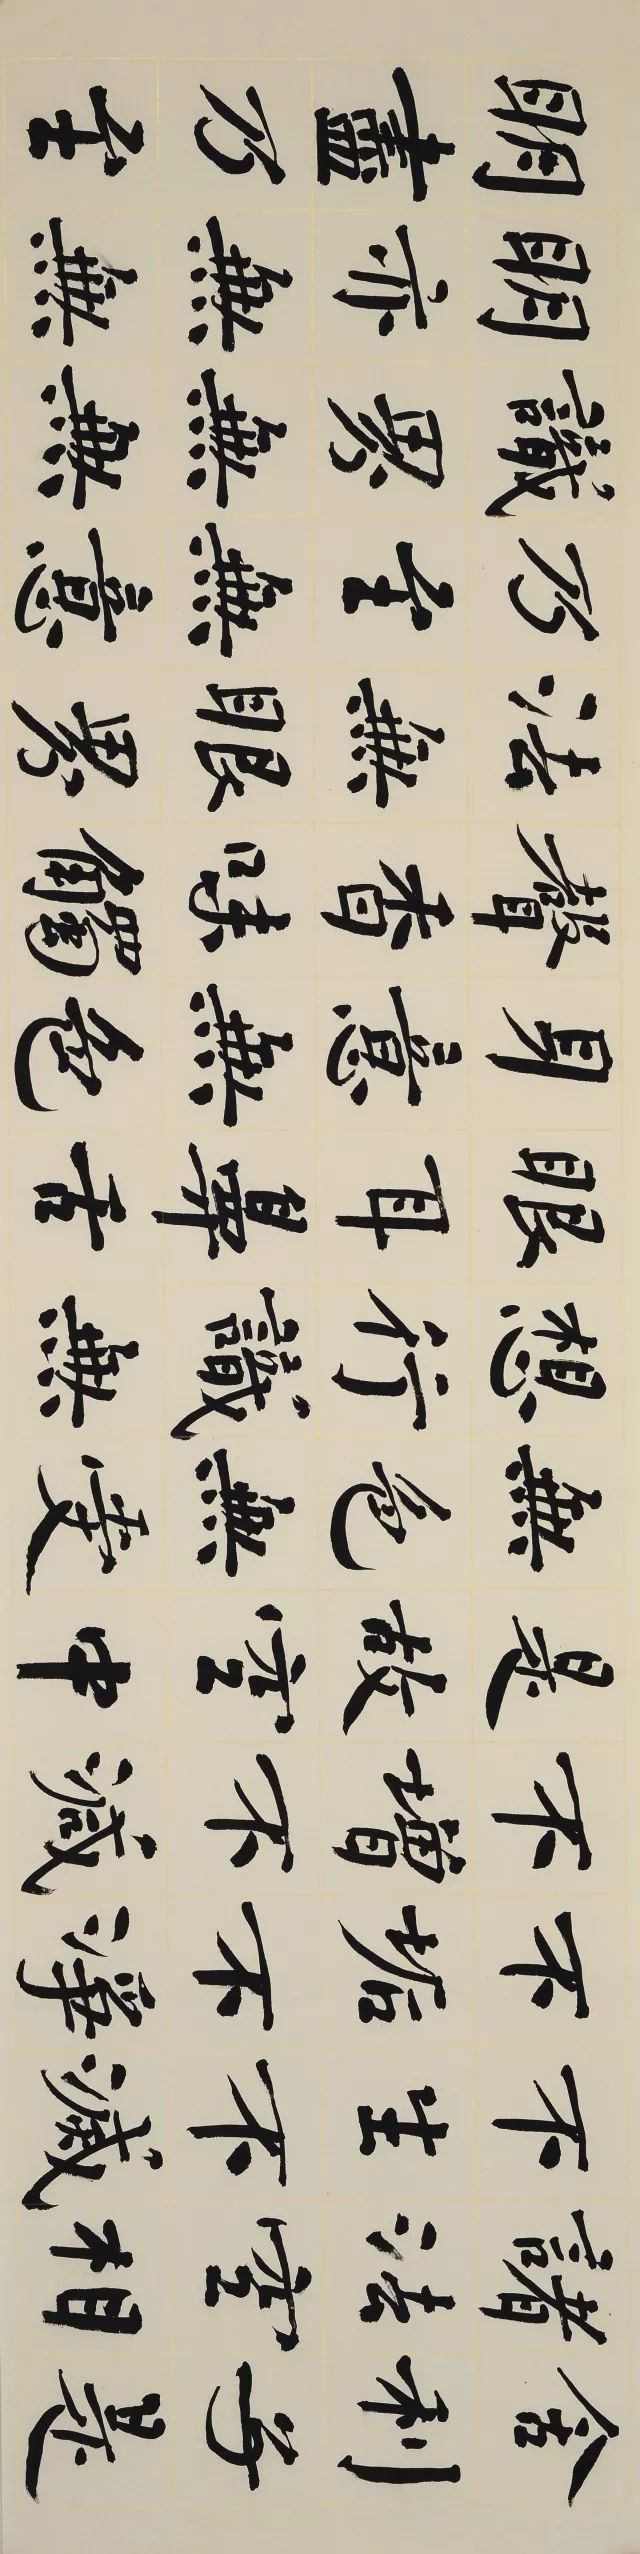 舍利子是
諸法空相
不生不滅
不垢不淨
不增不減
是故空中
無色無受
想行識無
眼耳鼻舌
身意無色
聲香味觸
法無眼界
乃至無意
識界無無
明亦無無
明盡乃至